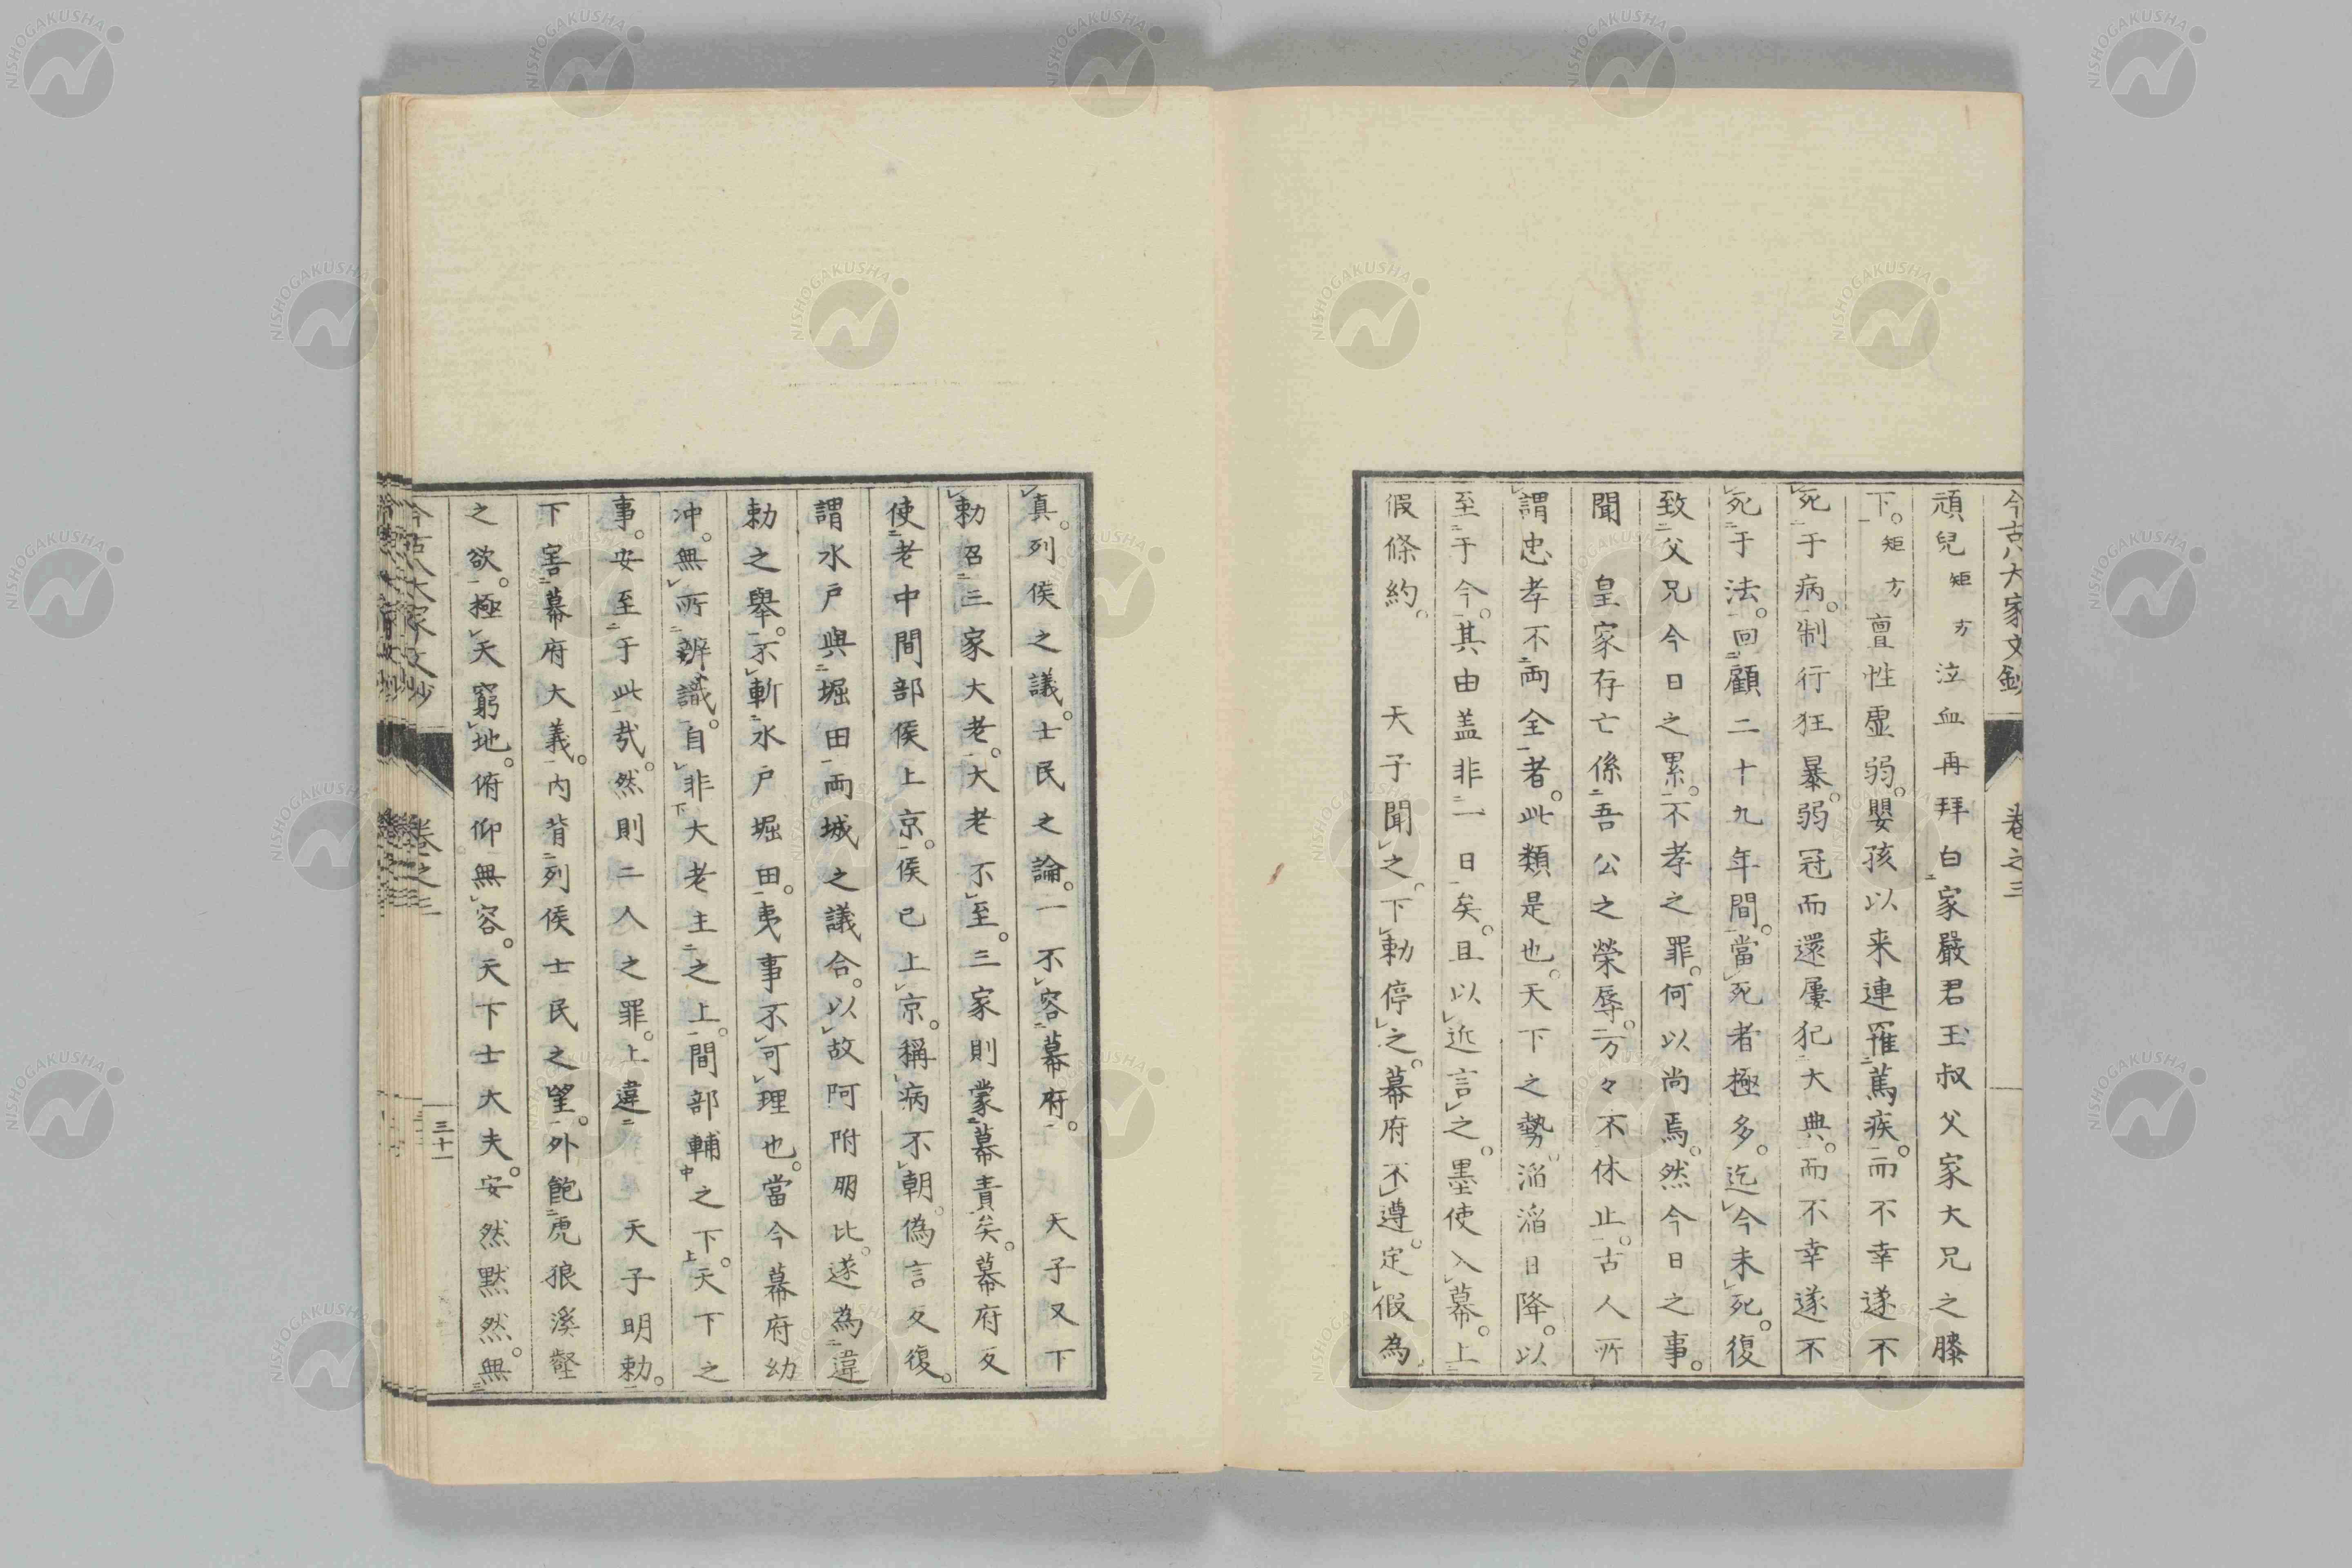 今古八大家文鈔 卷之三
頑兒矩方泣血再拜白家嚴君玉叔父家大兄之膝
下。矩方亶性虛弱。嬰孩以来連罹篤疾。而不幸遂不
死于病。制行狂暴。弱冠而還屢犯大典。而不幸遂不
死于法。回顧二十九年間。當死者極多。迄今未死。復
致父兄今日之累。不孝之罪。何以尚焉。然今日之事。
聞 皇家存亡係吾公之榮辱。万々不休止。古人所
謂忠孝不両全者。此類是也。天下之勢。滔滔日降。以
至于今。其由盖非一日矣。且以近言之。墨使入幕。上
假條約。 天子聞之。下勅停之。幕府不遵。定假為
真。列侯之議。士民之論。一不容幕府。 天子又下
勅召三家大老。大老不至。三家則蒙幕責矣。幕府反
使老中間部侯上京。侯已上京。稱病不朝。偽言反復。
謂水戸與堀田両城之議合。以故阿附朋比。遂為違
勅之舉。不斬水戸堀田。夷事不可理也。當今幕府幼
冲。無所辨識。自非大老主之上。間部輔之下。天下之
事。安至于此哉。然則二人之罪。上違 天子明勅。
下害幕府大義。内背列侯士民之望。外飽虎狼溪壑
之欲。極天窮地。俯仰無容。天下士大夫。安然黙然。無
今古八大家文鈔 卷之三 三十一